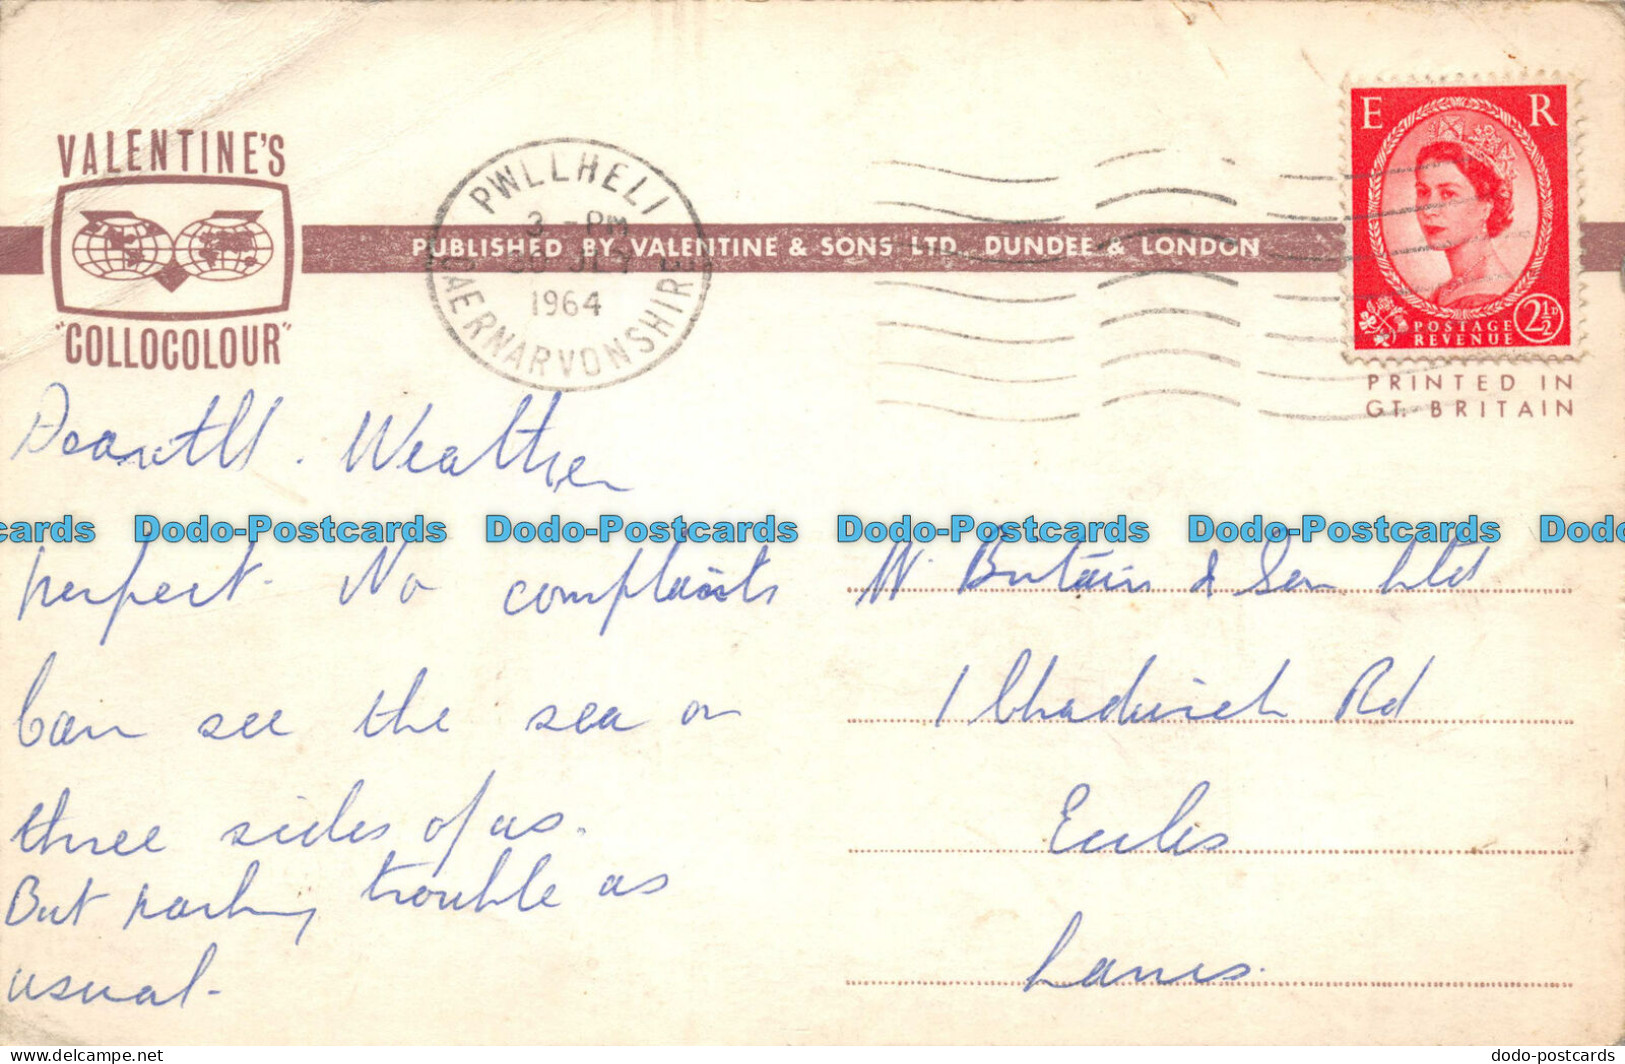 VALENTINE'S
"COLLOCOLOUR"
PWLLHELI
3 - PM
JLY
1964
CAERNARVONSHIRE
PUBLISHED BY VALENTINE & SONS LTD. DUNDEE & LONDON
E R
POSTAGE
REVENUE
2½D
PRINTED IN
GT. BRITAIN
Weather
perfect. No complaints
Can see the sea on
three sides of us.
But parking trouble as
usual.
W. Britain & Son Ltd
1 Chadwick Rd
Eccles
Lancs.
cards Dodo-Postcards Dodo-Postcards Dodo-Postcards Dodo-Postcards Dod
www.delcampe.net
dodo-postcards